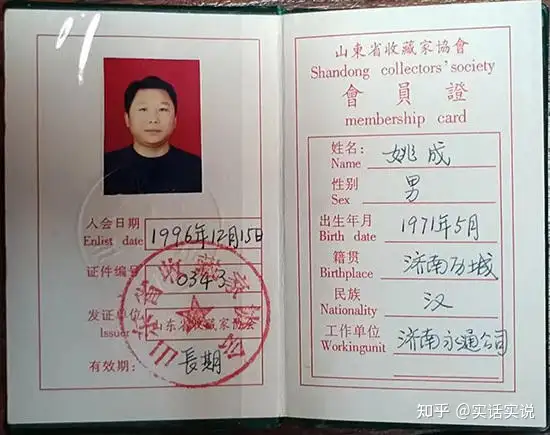 入会日期
Enlist date 1996年12月15日
证件编号 0343
发证单位
Issuer 山东省收藏家协会
有效期: 長期
山東省收藏家協會
Shandong collectors' society
會員證
membership card
姓名:
Name 姚成
性别
Sex 男
出生年月
Birth date 1971年5月
籍贯
Birthplace 济南历城
民族
Nationality 汉
工作单位
Workingunit 济南永通公司
知乎 @实话实说